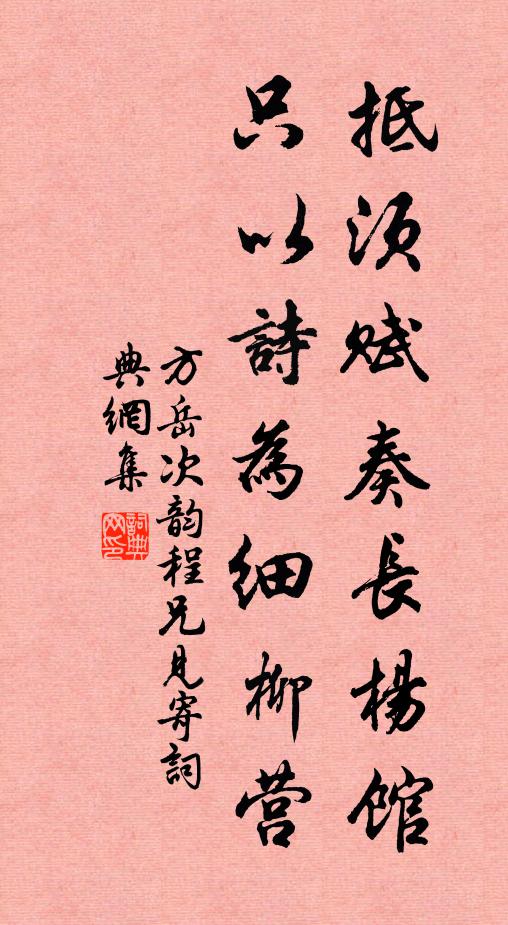 抵须赋奏長楊館
只以詩為细柳营
方岳次韵程兄見寄詞
典網集
詞典网印